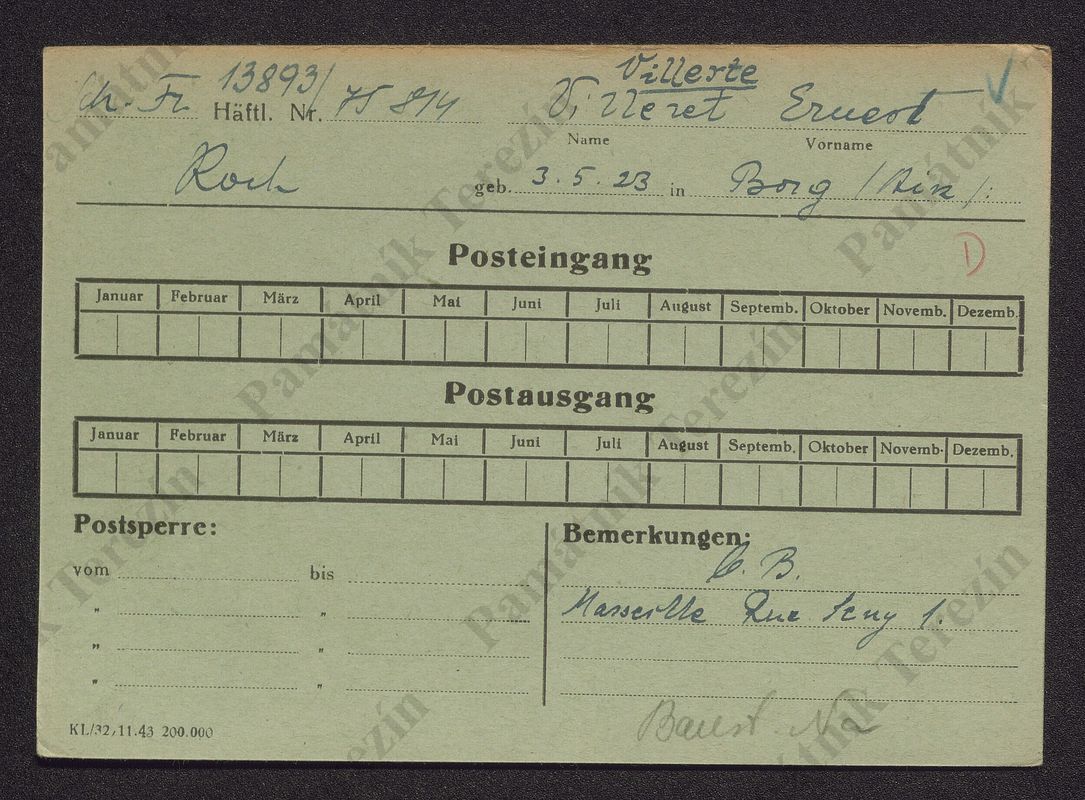 Villerte
Sch. Fr. 13893/
Häftl. Nr. 75 814 Villeret Ernest
Name Vorname
Roch geb. 3. 5. 23 in Borg (Ain).
D
Posteingang
Januar Februar März April Mai Juni Juli August Septemb. Oktober Novemb. Dezemb.
Postausgang
Januar Februar März April Mai Juni Juli August Septemb. Oktober Novemb. Dezemb.
Postsperre: Bemerkungen:
vom bis C. B.
" " Marseille Rue 1.
" "
" "
KL/32, 11.43 200.000
Památník Terezín